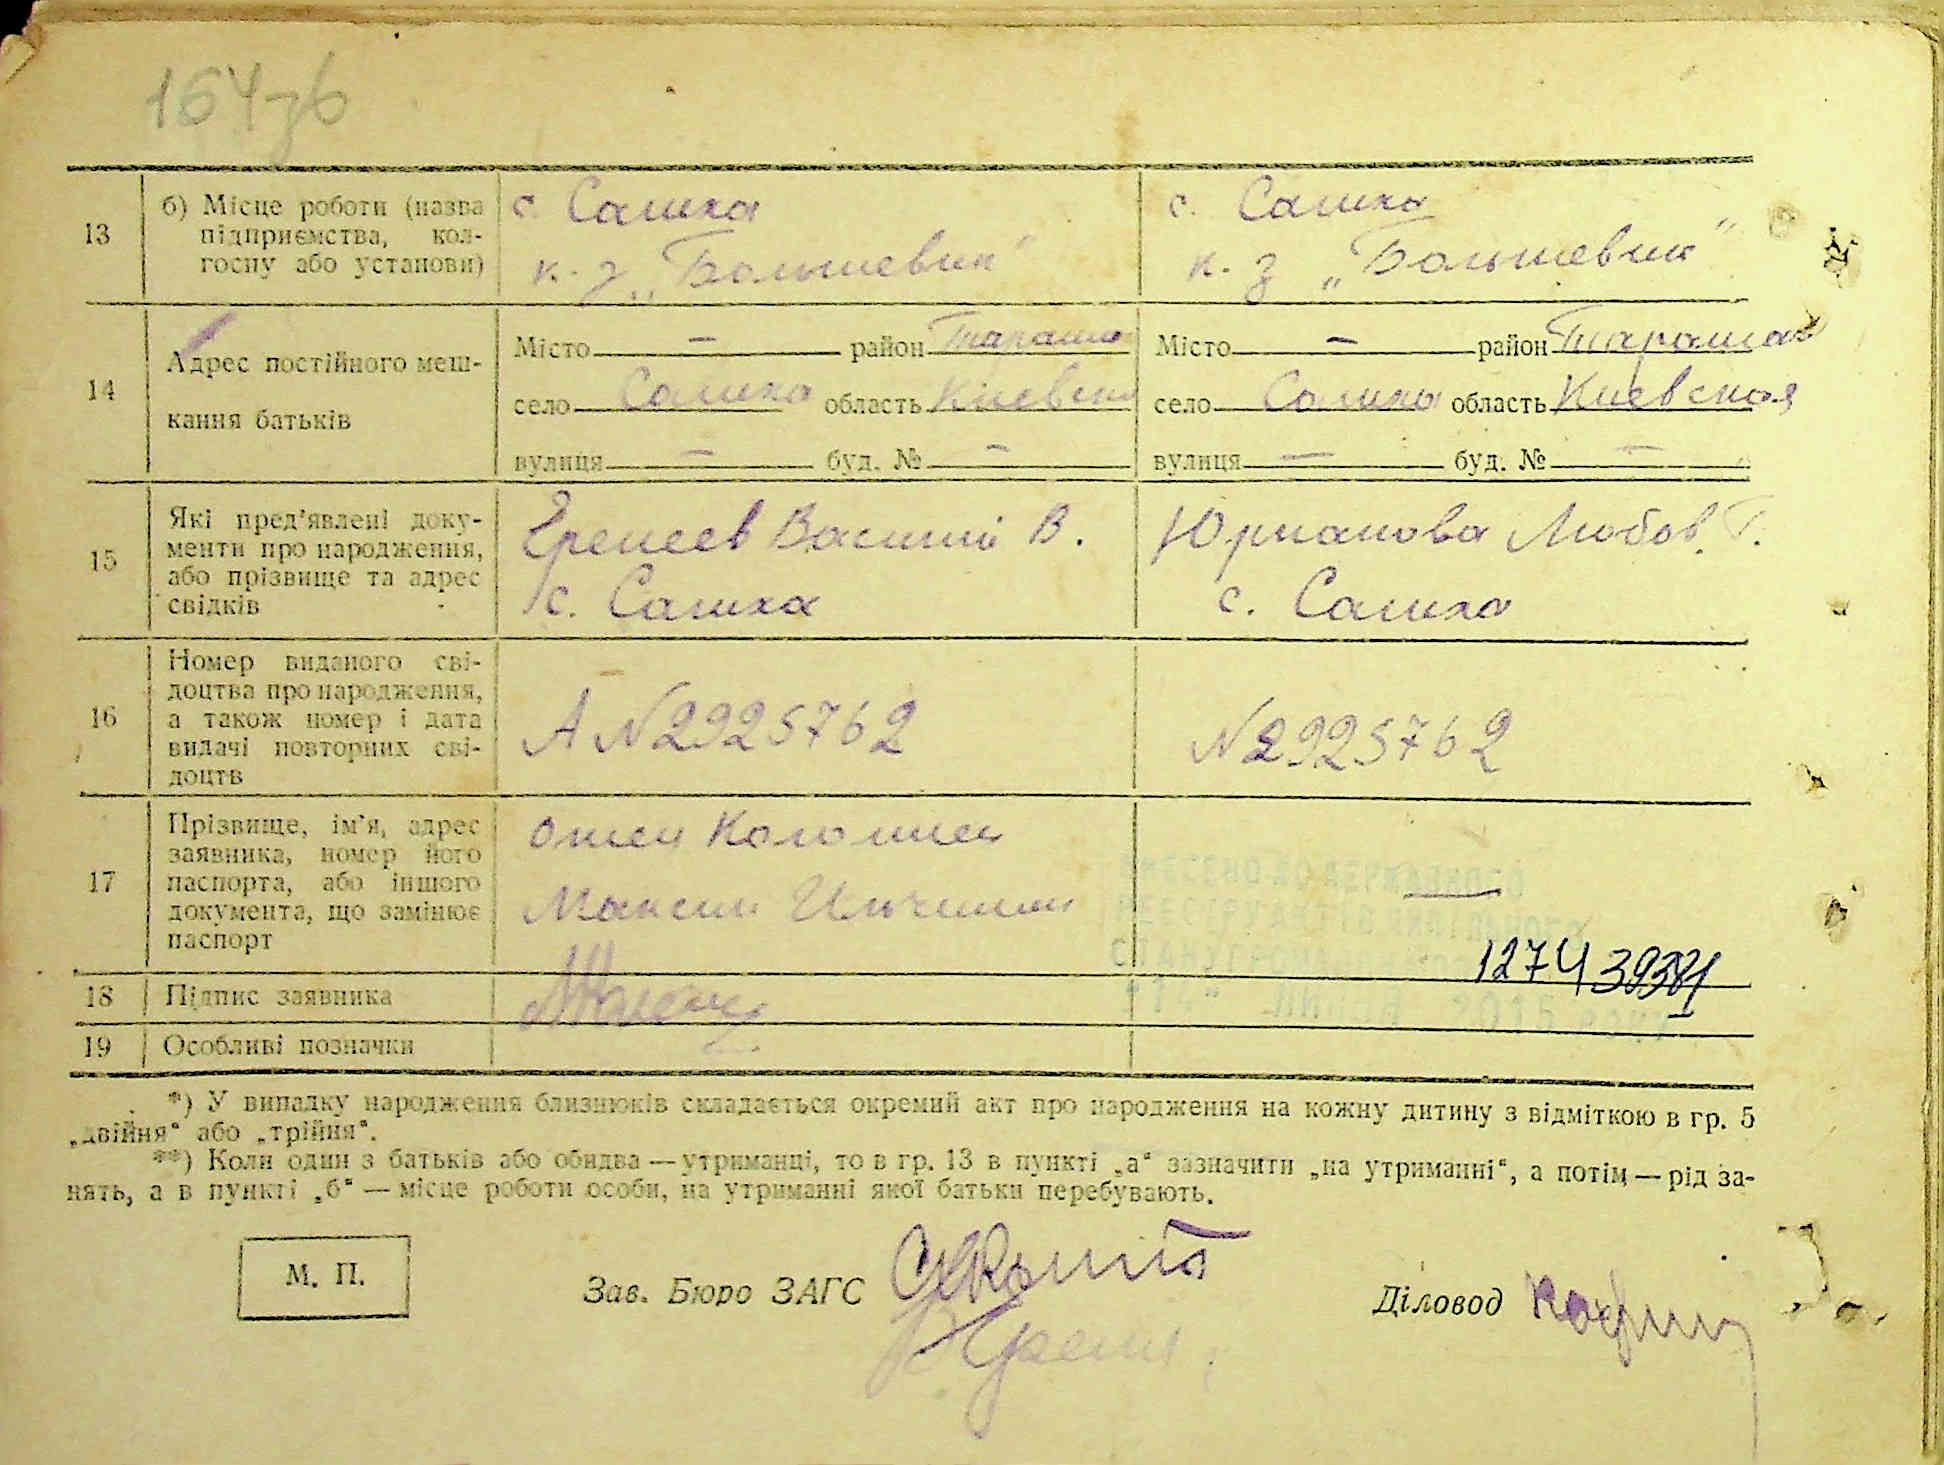 164 зв
13
б) Місце роботи (назва
підприємства, кол-
госпу або установи)
с. Салиха
к-з „Большевик"
с. Салиха
к-з „Большевик"
14
Адрес постійного меш-
кання батьків
Місто — район Тараща
село Салиха область Киевска
вулиця — буд. № —
Місто — район Таращав
село Салиха область Киевская
вулиця — буд. № —
15
Які пред'явлені доку-
менти про народження,
або прізвище та адрес
свідків
Еремеев Василий В.
с. Салиха
Юрманова Любов. Г.
с. Салиха
16
Номер виданого сві-
доцтва про народження,
а також номер і дата
видачі повторних сві-
доцтв
А N2925762
N2925762
17
Прізвище, ім'я, адрес
заявника, номер його
паспорта, або іншого
документа, що замінює
паспорт
Отец Коломиец
Максим
—
ВНЕСЕНО ДО ДЕРЖАВНОГО
РЕЄСТРУ АКТІВ ЦИВІЛЬНОГО
СТАНУ ГРОМАДЯН
"14" 2015 року
18
Підпис заявника
19
Особливі позначки
*) У випадку народження близнюків складається окремий акт про народження на кожну дитину з відміткою в гр. 5
„двійня“ або „трійня“.
**) Коли один з батьків або обидва — утриманці, то в гр. 13 в пункті „а“ зазначити „на утриманні“, а потім — рід за-
нять, а в пункті „б“ — місце роботи особи, на утриманні якої батьки перебувають.
М. П.
Зав. Бюро ЗАГС
Діловод